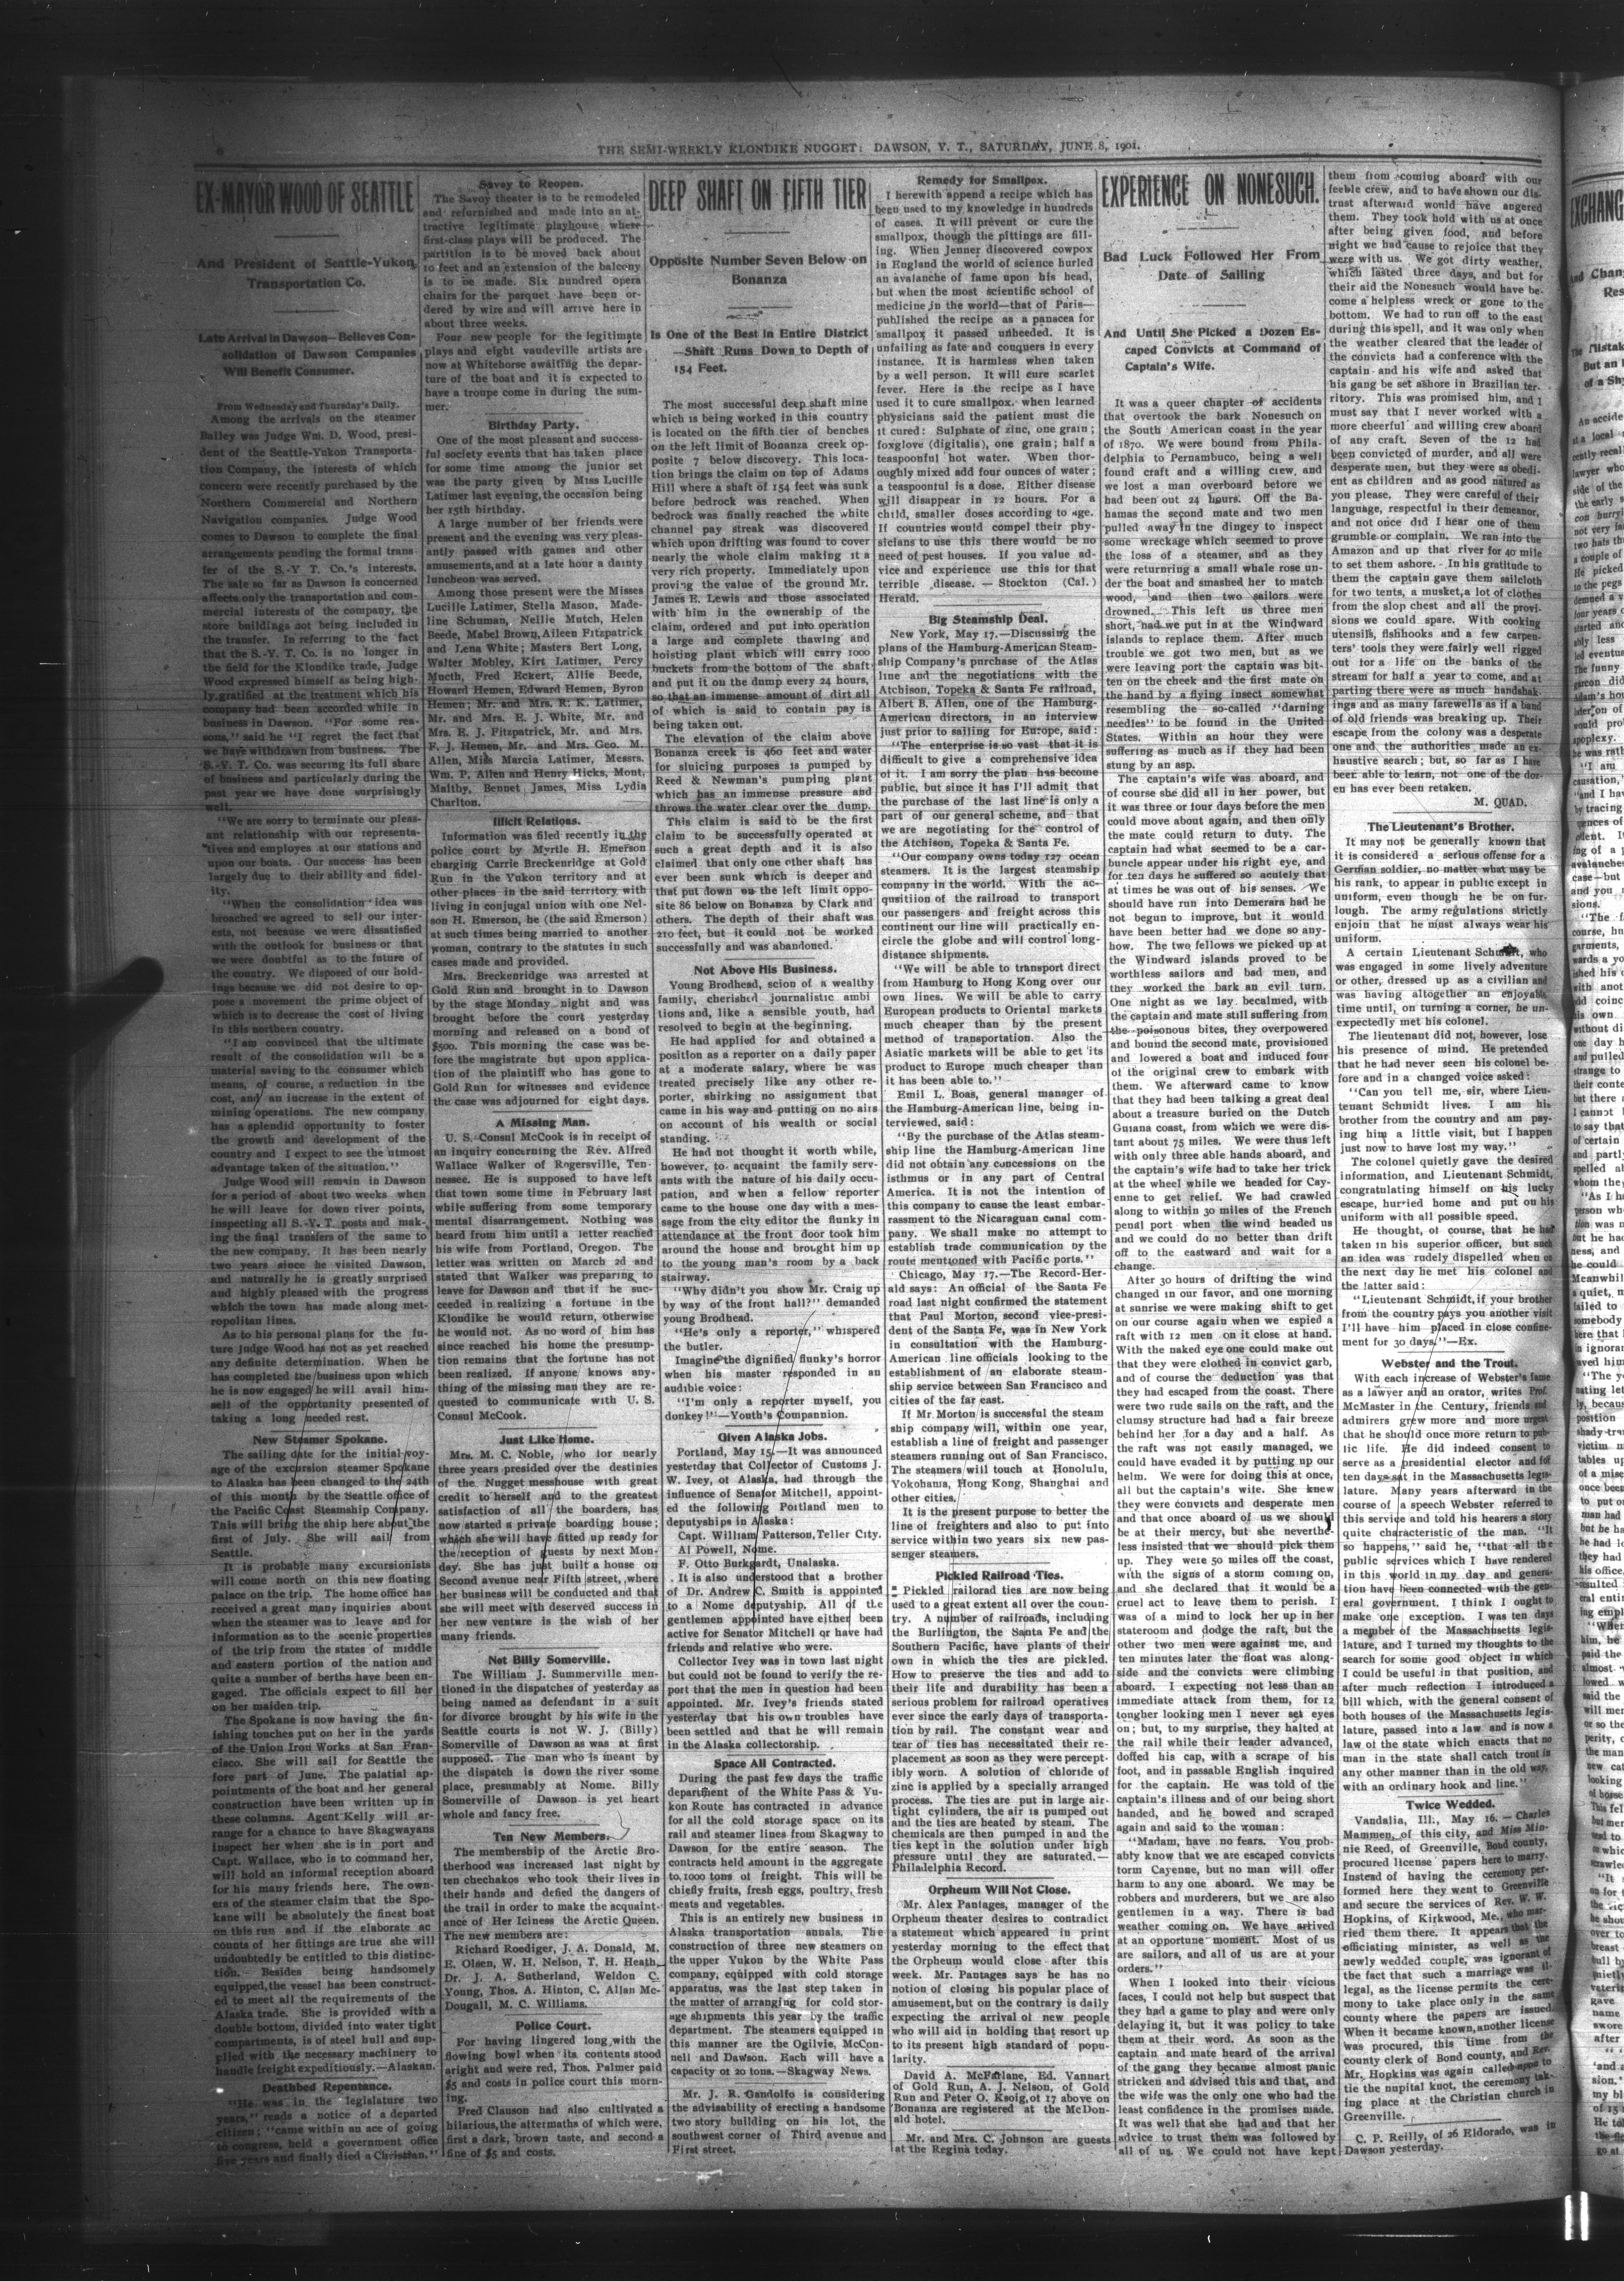 6
THE SEMI-WEEKLY KLONDIKE NUGGET: DAWSON, Y. T., SATURDAY, JUNE 8, 1901.
EX-MAYOR WOOD OF SEATTLE
And President of Seattle-Yukon
Transportation Co.
Late Arrival in Dawson—Believes Con-
solidation of Dawson Companies
Will Benefit Consumer.
From Wednesday and Thursday's Daily.
Among the arrivals on the steamer
Bailey was Judge Wm. D. Wood, presi-
dent of the Seattle-Yukon Transporta-
tion Company, the interests of which
concern were recently purchased by the
Northern Commercial and Northern
Navigation companies. Judge Wood
comes to Dawson to complete the final
arrangements pending the formal trans-
fer of the S.-Y T. Co.'s interests.
The sale so far as Dawson is concerned
affects only the transportation and com-
mercial interests of the company, the
store buildings not being included in
the transfer. In referring to the fact
that the S.-Y. T. Co. is no longer in
the field for the Klondike trade, Judge
Wood expressed himself as being high-
ly gratified at the treatment which his
company had been accorded while in
business in Dawson. "For some rea-
sons," said he "I regret the fact that
we have withdrawn from business. The
S.-Y. T. Co. was securing its full share
of business and particularly during the
past year we have done surprisingly
well.
"We are sorry to terminate our pleas-
ant relationship with our representa-
tives and employes at our stations and
upon our boats. Our success has been
largely due to their ability and fidel-
ity.
"When the consolidation idea was
broached we agreed to sell our inter-
ests, not because we were dissatisfied
with the outlook for business or that
we were doubtful as to the future of
the country. We disposed of our hold-
ings because we did not desire to op-
pose a movement the prime object of
which is to decrease the cost of living
in this northern country.
"I am convinced that the ultimate
result of the consolidation will be a
material saving to the consumer which
means, of course, a reduction in the
cost, and an increase in the extent of
mining operations. The new company
has a splendid opportunity to foster
the growth and development of the
country and I expect to see the utmost
advantage taken of the situation."
Judge Wood will remain in Dawson
for a period of about two weeks when
he will leave for down river points,
inspecting all S.-Y. T. posts and mak-
ing the final transfers of the same to
the new company. It has been nearly
two years since he visited Dawson,
and naturally he is greatly surprised
and highly pleased with the progress
which the town has made along met-
ropolitan lines.
As to his personal plans for the fu-
ture Judge Wood has not as yet reached
any definite determination. When he
has completed the business upon which
he is now engaged he will avail him-
self of the opportunity presented of
taking a long needed rest.
New Steamer Spokane.
The sailing date for the initial voy-
age of the excursion steamer Spokane
to Alaska has been changed to the 24th
of this month by the Seattle office of
the Pacific Coast Steamship Company.
This will bring the ship here about the
first of July. She will sail from
Seattle.
It is probable many excursionists
will come north on this new floating
palace on the trip. The home office has
received a great many inquiries about
when the steamer was to leave and for
information as to the scenic properties
of the trip from the states of middle
and eastern portion of the nation and
quite a number of berths have been en-
gaged. The officials expect to fill her
on her maiden trip.
The Spokane is now having the fin-
ishing touches put on her in the yards
of the Union Iron Works at San Fran-
cisco. She will sail for Seattle the
fore part of June. The palatial ap-
pointments of the boat and her general
construction have been written up in
these columns. Agent Kelly will ar-
range for a chance to have Skagwayans
inspect her when she is in port and
Capt. Wallace, who is to command her,
will hold an informal reception aboard
for his many friends here. The own-
ers of the steamer claim that the Spo-
kane will be absolutely the finest boat
on this run and if the elaborate ac
counts of her fittings are true she will
undoubtedly be entitled to this distinc-
tion. Besides being handsomely
equipped, the vessel has been construct-
ed to meet all the requirements of the
Alaska trade. She is provided with a
double bottom, divided into water tight
compartments, is of steel hull and sup-
plied with the necessary machinery to
handle freight expeditiously.—Alaskan.
Deathbed Repentance.
"He was in the legislature two
years," reads a notice of a departed
citizen; "came within an ace of going
to congress, held a government office
five years and finally died a Christian."
Savoy to Reopen.
The Savoy theater is to be remodeled
and refurnished and made into an at-
tractive legitimate playhouse where
first-class plays will be produced. The
partition is to be moved back about
10 feet and an extension of the balcony
is to be made. Six hundred opera
chairs for the parquet have been or-
dered by wire and will arrive here in
about three weeks.
Four new people for the legitimate
plays and eight vaudeville artists are
now at Whitehorse awaiting the depar-
ture of the boat and it is expected to
have a troupe come in during the sum-
mer.
Birthday Party.
One of the most pleasant and success-
ful society events that has taken place
for some time among the junior set
was the party given by Miss Lucille
Latimer last evening, the occasion being
her 15th birthday.
A large number of her friends were
present and the evening was very pleas-
antly passed with games and other
amusements, and at a late hour a dainty
luncheon was served.
Among those present were the Misses
Lucille Latimer, Stella Mason, Made-
line Schuman, Nellie Mutch, Helen
Beede, Mabel Brown, Aileen Fitzpatrick
and Lena White; Masters Bert Long,
Walter Mobley, Kirt Latimer, Percy
Mucth, Fred Eckert, Allie Beede,
Howard Hemen, Edward Hemen, Byron
Hemen; Mr. and Mrs. R. K. Latimer,
Mr. and Mrs. E. J. White, Mr. and
Mrs. E. J. Fitzpatrick, Mr. and Mrs.
F. J. Hemen, Mr. and Mrs. Geo. M.
Allen, Miss Marcia Latimer, Messrs.
Wm. P. Allen and Henry Hicks, Mont,
Maltby, Bennet James, Miss Lydia
Charlton.
Illicit Relations.
Information was filed recently in the
police court by Myrtle H. Emerson
charging Carrie Breckenridge at Gold
Run in the Yukon territory and at
other places in the said territory with
living in conjugal union with one Nel-
son H. Emerson, he (the said Emerson)
at such times being married to another
woman, contrary to the statutes in such
cases made and provided.
Mrs. Breckenridge was arrested at
Gold Run and brought in to Dawson
by the stage Monday night and was
brought before the court yesterday
morning and released on a bond of
$500. This morning the case was be-
fore the magistrate but upon applica-
tion of the plaintiff who has gone to
Gold Run for witnesses and evidence
the case was adjourned for eight days.
A Missing Man.
U. S. Consul McCook is in receipt of
an inquiry concerning the Rev. Alfred
Wallace Walker of Rogersville, Ten-
nessee. He is supposed to have left
that town some time in February last
while suffering from some temporary
mental disarrangement. Nothing was
heard from him until a letter reached
his wife from Portland, Oregon. The
letter was written on March 2d and
stated that Walker was preparing to
leave for Dawson and that if he suc-
ceeded in realizing a fortune in the
Klondike he would return, otherwise
he would not. As no word of him has
since reached his home the presump-
tion remains that the fortune has not
been realized. If anyone knows any-
thing of the missing man they are re-
quested to communicate with U. S.
Consul McCook.
Just Like Home.
Mrs. M. C. Noble, who for nearly
three years presided over the destinies
of the Nugget messhouse with great
credit to herself and to the greatest
satisfaction of all the boarders, has
now started a private boarding house;
which she will have fitted up ready for
the reception of guests by next Mon-
day. She has just built a house on
Second avenue near Fifth street, where
her business will be conducted and that
she will meet with deserved success in
her new venture is the wish of her
many friends.
Not Billy Somerville.
The William J. Summerville men-
tioned in the dispatches of yesterday as
being named as defendant in a suit
for divorce brought by his wife in the
Seattle courts is not W. J. (Billy)
Somerville of Dawson as was at first
supposed. The man who is meant by
the dispatch is down the river some
place, presumably at Nome. Billy
Somerville of Dawson is yet heart
whole and fancy free.
Ten New Members.
The membership of the Arctic Bro-
therhood was increased last night by
ten chechakos who took their lives in
their hands and defied the dangers of
the trail in order to make the acquaint-
ance of Her Iciness the Arctic Queen.
The new members are:
Richard Roediger, J. A. Donald, M.
E. Olsen, W. H. Nelson, T. H. Heath,
Dr. J. A. Sutherland, Weldon C.
Young, Thos. A. Hinton, C. Allan Mc-
Dougall, M. C. Williams.
Police Court.
For having lingered long with the
flowing bowl when its contents stood
aright and were red, Thos. Palmer paid
$5 and costs in police court this morn-
ing.
Fred Clauson had also cultivated a
hilarious, the aftermaths of which were,
first a dark, brown taste, and second a
fine of $5 and costs.
DEEP SHAFT ON FIFTH TIER
Opposite Number Seven Below on
Bonanza
Is One of the Best in Entire District
—Shaft Runs Down to Depth of
154 Feet.
The most successful deep shaft mine
which is being worked in this country
is located on the fifth tier of benches
on the left limit of Bonanza creek op-
posite 7 below discovery. This loca-
tion brings the claim on top of Adams
Hill where a shaft of 154 feet was sunk
before bedrock was reached. When
bedrock was finally reached the white
channel pay streak was discovered
which upon drifting was found to cover
nearly the whole claim making it a
very rich property. Immediately upon
proving the value of the ground Mr.
James E. Lewis and those associated
with him in the ownership of the
claim, ordered and put into operation
a large and complete thawing and
hoisting plant which will carry 1000
buckets from the bottom of the shaft
and put it on the dump every 24 hours,
so that an immense amount of dirt all
of which is said to contain pay is
being taken out.
The elevation of the claim above
Bonanza creek is 460 feet and water
for sluicing purposes is pumped by
Reed & Newman's pumping plant
which has an immense pressure and
throws the water clear over the dump.
This claim is said to be the first
claim to be successfully operated at
such a great depth and it is also
claimed that only one other shaft has
ever been sunk which is deeper and
that put down on the left limit oppo-
site 86 below on Bonanza by Clark and
others. The depth of their shaft was
210 feet, but it could not be worked
successfully and was abandoned.
Not Above His Business.
Young Brodhead, scion of a wealthy
family, cherished journalistic ambi
tions and, like a sensible youth, had
resolved to begin at the beginning.
He had applied for and obtained a
position as a reporter on a daily paper
at a moderate salary, where he was
treated precisely like any other re-
porter, shirking no assignment that
came in his way and putting on no airs
on account of his wealth or social
standing.
He had not thought it worth while,
however, to acquaint the family serv-
ants with the nature of his daily occu-
pation, and when a fellow reporter
came to the house one day with a mes-
sage from the city editor the flunky in
attendance at the front door took him
around the house and brought him up
to the young man's room by a back
stairway.
"Why didn't you show Mr. Craig up
by way of the front hall?" demanded
young Brodhead.
"He's only a reporter," whispered
the butler.
Imagine the dignified flunky's horror
when his master responded in an
audible voice:
"I'm only a reporter myself, you
donkey!"—Youth's Compannion.
Given Alaska Jobs.
Portland, May 15.—It was announced
yesterday that Collector of Customs J.
W. Ivey, of Alaska, had through the
influence of Senator Mitchell, appoint-
ed the following Portland men to
deputyships in Alaska:
Capt. William Patterson, Teller City.
Al Powell, Nome.
F. Otto Burkgardt, Unalaska.
It is also understood that a brother
of Dr. Andrew C. Smith is appointed
to a Nome deputyship. All of the
gentlemen appointed have either been
active for Senator Mitchell or have had
friends and relative who were.
Collector Ivey was in town last night
but could not be found to verify the re-
port that the men in question had been
appointed. Mr. Ivey's friends stated
yesterday that his own troubles have
been settled and that he will remain
in the Alaska collectorship.
Space All Contracted.
During the past few days the traffic
department of the White Pass & Yu-
kon Route has contracted in advance
for all the cold storage space on its
rail and steamer lines from Skagway to
Dawson for the entire season. The
contracts held amount in the aggregate
to 1000 tons of freight. This will be
chiefly fruits, fresh eggs, poultry, fresh
meats and vegetables.
This is an entirely new business in
Alaska transportation annals. The
construction of three new steamers on
the upper Yukon by the White Pass
company, equipped with cold storage
apparatus, was the last step taken in
the matter of arranging for cold stor-
age shipments this year by the traffic
department. The steamers equipped in
this manner are the Ogilvie, McCon-
nell and Dawson. Each will have a
capacity of 20 tons.—Skagway News.
Mr. J. R. Gandolfo is considering
the advisability of erecting a handsome
two story building on his lot, the
southwest corner of Third avenue and
First street.
Remedy for Smallpox.
I herewith append a recipe which has
been used to my knowledge in hundreds
of cases. It will prevent or cure the
smallpox, though the pittings are fill-
ing. When Jenner discovered cowpox
in England the world of science hurled
an avalanche of fame upon his head,
but when the most scientific school of
medicine in the world—that of Paris—
published the recipe as a panacea for
smallpox it passed unheeded. It is
unfailing as fate and conquers in every
instance. It is harmless when taken
by a well person. It will cure scarlet
fever. Here is the recipe as I have
used it to cure smallpox. when learned
physicians said the patient must die
it cured: Sulphate of zinc, one grain;
foxglove (digitalis), one grain; half a
teaspoonful hot water. When thor-
oughly mixed add four ounces of water;
a teaspoonful is a dose. Either disease
will disappear in 12 hours. For a
child, smaller doses according to age.
If countries would compel their phy-
sicians to use this there would be no
need of pest houses. If you value ad-
vice and experience use this for that
terrible disease. — Stockton (Cal.)
Herald.
Big Steamship Deal.
New York, May 17.—Discussing the
plans of the Hamburg-American Steam-
ship Company's purchase of the Atlas
line and the negotiations with the
Atchison, Topeka & Santa Fe railroad,
Albert B. Allen, one of the Hamburg-
American directors, in an interview
just prior to sailing for Europe, said:
"The enterprise is so vast that it is
difficult to give a comprehensive idea
of it. I am sorry the plan has become
public, but since it has I'll admit that
the purchase of the last line is only a
part of our general scheme, and that
we are negotiating for the control of
the Atchison, Topeka & Santa Fe.
"Our company owns today 127 ocean
steamers. It is the largest steamship
company in the world. With the ac-
qusitiion of the railroad to transport
our passengers and freight across this
continent our line will practically en-
circle the globe and will control long-
distance shipments.
"We will be able to transport direct
from Hamburg to Hong Kong over our
own lines. We will be able to carry
European products to Oriental markets
much cheaper than by the present
method of transportation. Also the
Asiatic markets will be able to get its
product to Europe much cheaper than
it has been able to."
Emil L. Boas, general manager of
the Hamburg-American line, being in-
terviewed, said:
"By the purchase of the Atlas steam-
ship line the Hamburg-American line
did not obtain any concessions on the
isthmus or in any part of Central
America. It is not the intention of
this company to cause the least embar-
rassment to the Nicaraguan canal com-
pany. We shall make no attempt to
establish trade communication by the
route mentioned with Pacific ports."
Chicago, May 17.—The Record-Her-
ald says: An official of the Santa Fe
road last night confirmed the statement
that Paul Morton, second vice-presi-
dent of the Santa Fe, was in New York
in consultation with the Hamburg-
American line officials looking to the
establishment of an elaborate steam-
ship service between San Francisco and
cities of the far east.
If Mr Morton is successful the steam
ship company will, within one year,
establish a line of freight and passenger
steamers running out of San Francisco.
The steamers will touch at Honolulu,
Yokohama, Hong Kong, Shanghai and
other cities.
It is the present purpose to better the
line of freighters and also to put into
service within two years six new pas-
senger steamers.
Pickled Railroad Ties.
Pickled railorad ties are now being
used to a great extent all over the coun-
try. A number of railroads, including
the Burlington, the Santa Fe and the
Southern Pacific, have plants of their
own in which the ties are pickled.
How to preserve the ties and add to
their life and durability has been a
serious problem for railroad operatives
ever since the early days of transporta-
tion by rail. The constant wear and
tear of ties has necessitated their re-
placement as soon as they were percept-
ibly worn. A solution of chloride of
zinc is applied by a specially arranged
process. The ties are put in large air-
tight cylinders, the air is pumped out
and the ties are heated by steam. The
chemicals are then pumped in and the
ties kept in the solution under high
pressure until they are saturated.—
Philadelphia Record.
Orpheum Will Not Close.
Mr. Alex Pantages, manager of the
Orpheum theater desires to contradict
a statement which appeared in print
yesterday morning to the effect that
the Orpheum would close after this
week. Mr. Pantages says he has no
notion of closing his popular place of
amusement, but on the contrary is daily
expecting the arrival of new people
who will aid in holding that resort up
to its present high standard of popu-
larity.
David A. McFarlane, Ed. Vannart
of Gold Run, A. J. Nelson, of Gold
Run and Peter O. Ksoig, of 17 above on
Bonanza are registered at the McDon-
ald hotel.
Mr. and Mrs. C. Johnson are guests
at the Regina today.
EXPERIENCE ON NONESUCH.
Bad Luck Followed Her From
Date of Sailing
And Until She Picked a Dozen Es-
caped Convicts at Command of
Captain's Wife.
It was a queer chapter of accidents
that overtook the bark Nonesuch on
the South American coast in the year
of 1870. We were bound from Phila-
delphia to Pernambuco, being a well
found craft and a willing crew, and
we lost a man overboard before we
had been out 24 hours. Off the Ba-
hamas the second mate and two men
pulled away in the dingey to inspect
some wreckage which seemed to prove
the loss of a steamer, and as they
were returning a small whale rose un-
der the boat and smashed her to match
wood, and then two sailors were
drowned. This left us three men
short, had we put in at the Windward
islands to replace them. After much
trouble we got two men, but as we
were leaving port the captain was bit-
ten on the cheek and the first mate on
the hand by a flying insect somewhat
resembling the so-called "darning
needles" to be found in the United
States. Within an hour they were
suffering as much as if they had been
stung by an asp.
The captain's wife was aboard, and
of course she did all in her power, but
it was three or four days before the men
could move about again, and then only
the mate could return to duty. The
captain had what seemed to be a car-
buncle appear under his right eye, and
for ten days he suffered so acutely that
at times he was out of his senses. We
should have run into Demerara had he
not begun to improve, but it would
have been better had we done so any-
how. The two fellows we picked up at
the Windward islands proved to be
worthless sailors and bad men, and
they worked the bark an evil turn.
One night as we lay becalmed, with
the captain and mate still suffering from
the poisonous bites, they overpowered
and bound the second mate, provisioned
and lowered a boat and induced four
of the original crew to embark with
them. We afterward came to know
that they had been talking a great deal
about a treasure buried on the Dutch
Guiana coast, from which we were dis-
tant about 75 miles. We were thus left
with only three able hands aboard, and
the captain's wife had to take her trick
at the wheel while we headed for Cay-
enne to get relief. We had crawled
along to within 30 miles of the French
penal port when the wind headed us
and we could do no better than drift
off to the eastward and wait for a
change.
After 30 hours of drifting the wind
changed in our favor, and one morning
at sunrise we were making shift to get
on our course again when we espied a
raft with 12 men on it close at hand.
With the naked eye one could make out
that they were clothed in convict garb,
and of course the deduction was that
they had escaped from the coast. There
were two rude sails on the raft, and the
clumsy structure had had a fair breeze
behind her for a day and a half. As
the raft was not easily managed, we
could have evaded it by putting up our
helm. We were for doing this at once,
all but the captain's wife. She knew
they were convicts and desperate men
and that once aboard of us we should
be at their mercy, but she neverthe-
less insisted that we should pick them
up. They were 50 miles off the coast,
with the signs of a storm coming on,
and she declared that it would be a
cruel act to leave them to perish. I
was of a mind to lock her up in her
stateroom and dodge the raft, but the
other two men were against me, and
ten minutes later the float was along-
side and the convicts were climbing
aboard. I expecting not less than an
immediate attack from them, for 12
tougher looking men I never set eyes
on; but, to my surprise, they halted at
the rail while their leader advanced,
doffed his cap, with a scrape of his
foot, and in passable English inquired
for the captain. He was told of the
captain's illness and of our being short
handed, and he bowed and scraped
again and said to the woman:
"Madam, have no fears. You prob-
ably know that we are escaped convicts
form Cayenne, but no man will offer
harm to any one aboard. We may be
robbers and murderers, but we are also
gentlemen in a way. There is bad
weather coming on. We have arrived
at an opportune moment. Most of us
are sailors, and all of us are at your
orders."
When I looked into their vicious
faces, I could not help but suspect that
they had a game to play and were only
delaying it, but it was policy to take
them at their word. As soon as the
captain and mate heard of the arrival
of the gang they became almost panic
stricken and advised this and that, and
the wife was the only one who had the
least confidence in the promises made.
It was well that she had and that her
advice to trust them was followed by
all of us. We could not have kept
them from coming aboard with our
feeble crew, and to have shown our dis-
trust afterward would have angered
them. They took hold with us at once
after being given food, and before
night we had cause to rejoice that they
were with us. We got dirty weather,
which lasted three days, and but for
their aid the Nonesuch would have be-
come a helpless wreck or gone to the
bottom. We had to run off to the east
during this spell, and it was only when
the weather cleared that the leader of
the convicts had a conference with the
captain and his wife and asked that
his gang be set ashore in Brazilian ter-
ritory. This was promised him, and I
must say that I never worked with a
more cheerful and willing crew aboard
of any craft. Seven of the 12 had
been convicted of murder, and all were
desperate men, but they were as obedi-
ent as children and as good natured as
you please. They were careful of their
language, respectful in their demeanor,
and not once did I hear one of them
grumble or complain. We ran into the
Amazon and up that river for 40 mile
to set them ashore. In his gratitude to
them the captain gave them sailcloth
for two tents, a musket, a lot of clothes
from the slop chest and all the provi-
sions we could spare. With cooking
utensils, fishhooks and a few carpen-
ters' tools they were fairly well rigged
out for a life on the banks of the
stream for half a year to come, and at
parting there were as much handshak-
ings and as many farewells as if a band
of old friends was breaking up. Their
escape from the colony was a desperate
one and the authorities made an ex-
haustive search; but, so far as I have
beer able to learn, not one of the doz-
en has ever been retaken.
M. QUAD.
The Lieutenant's Brother.
It may not be generally known that
it is considered a serious offense for a
German soldier, no matter what may be
his rank, to appear in public except in
uniform, even though he be on fur-
lough. The army regulations strictly
enjoin that he must always wear his
uniform.
A certain Lieutenant Schmidt, who
was engaged in some lively adventure
or other, dressed up as a civilian and
was having altogether an enjoyable
time until, on turning a corner, he un-
expectedly met his colonel.
The lieutenant did not, however, lose
his presence of mind. He pretended
that he had never seen his colonel be-
fore and in a changed voice asked:
"Can you tell me, sir, where Lieu-
tenant Schmidt lives. I am his
brother from the country and am pay-
ing him a little visit, but I happen
just now to have lost my way."
The colonel quietly gave the desired
information, and Lieutenant Schmidt,
congratulating himself on his lucky
escape, hurried home and put on his
uniform with all possible speed.
He thought, of course, that he had
taken in his superior officer, but such
an idea was rudely dispelled when on
the next day he met his colonel and
the latter said:
"Lieutenant Schmidt, if your brother
from the country pays you another visit
I'll have him placed in close confine-
ment for 30 days."—Ex.
Webster and the Trout.
With each increase of Webster's fame
as a lawyer and an orator, writes Prof.
McMaster in the Century, friends and
admirers grew more and more urgent
that he should once more return to pub-
lic life. He did indeed consent to
serve as a presidential elector and for
ten days sat in the Massachusetts legis-
lature. Many years afterward in the
course of a speech Webster referred to
this service and told his hearers a story
quite characteristic of the man. "It
so happens," said he, "that all the
public services which I have rendered
in this world in my day and genera-
tion have been connected with the gen-
eral government. I think I ought to
make one exception. I was ten days
a member of the Massachusetts legis-
lature, and I turned my thoughts to the
search for some good object in which
I could be useful in that position, and
after much reflection I introduced a
bill which, with the general consent of
both houses of the Massachusetts legis-
lature, passed into a law and is now a
law of the state which enacts that no
man in the state shall catch trout in
any other manner than in the old way,
with an ordinary hook and line."
Twice Wedded.
Vandalia, Ill., May 16. — Charles
Mammen, of this city, and Miss Min-
nie Reed, of Greenville, Bond county,
procured license papers here to marry.
Instead of having the ceremony per-
formed here they went to Greenville
and secure the services of Rev. W. W.
Hopkins, of Kirkwood, Me., who mar-
ried them there. It appears that the
officiating minister, as well as the
newly wedded couple, was ignorant of
the fact that such a marriage was il-
legal, as the license permits the cere-
mony to take place only in the same
county where the papers are issued.
When it became known, another license
was procured, this time from the
county clerk of Bond county, and Rev.
Mr. Hopkins was again called to
tie the nupital knot, the ceremony tak-
ing place at the Christian church in
Greenville.
C. P. Reilly, of 26 Eldorado, was in
Dawson yesterday.